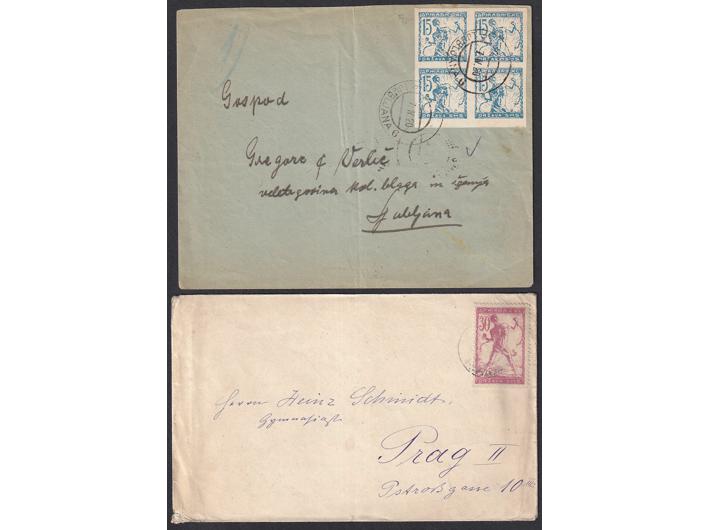 15 15
15 15
DRŽAVA SHS DRŽAVA SHS
Gospod
Gregorc & Verlič
veletrgovina kol. blaga in žganja
Ljubljana
30
Herrn Heinz Schmidt.
Gymnasiast
Prag II
Pstroßgasse 10